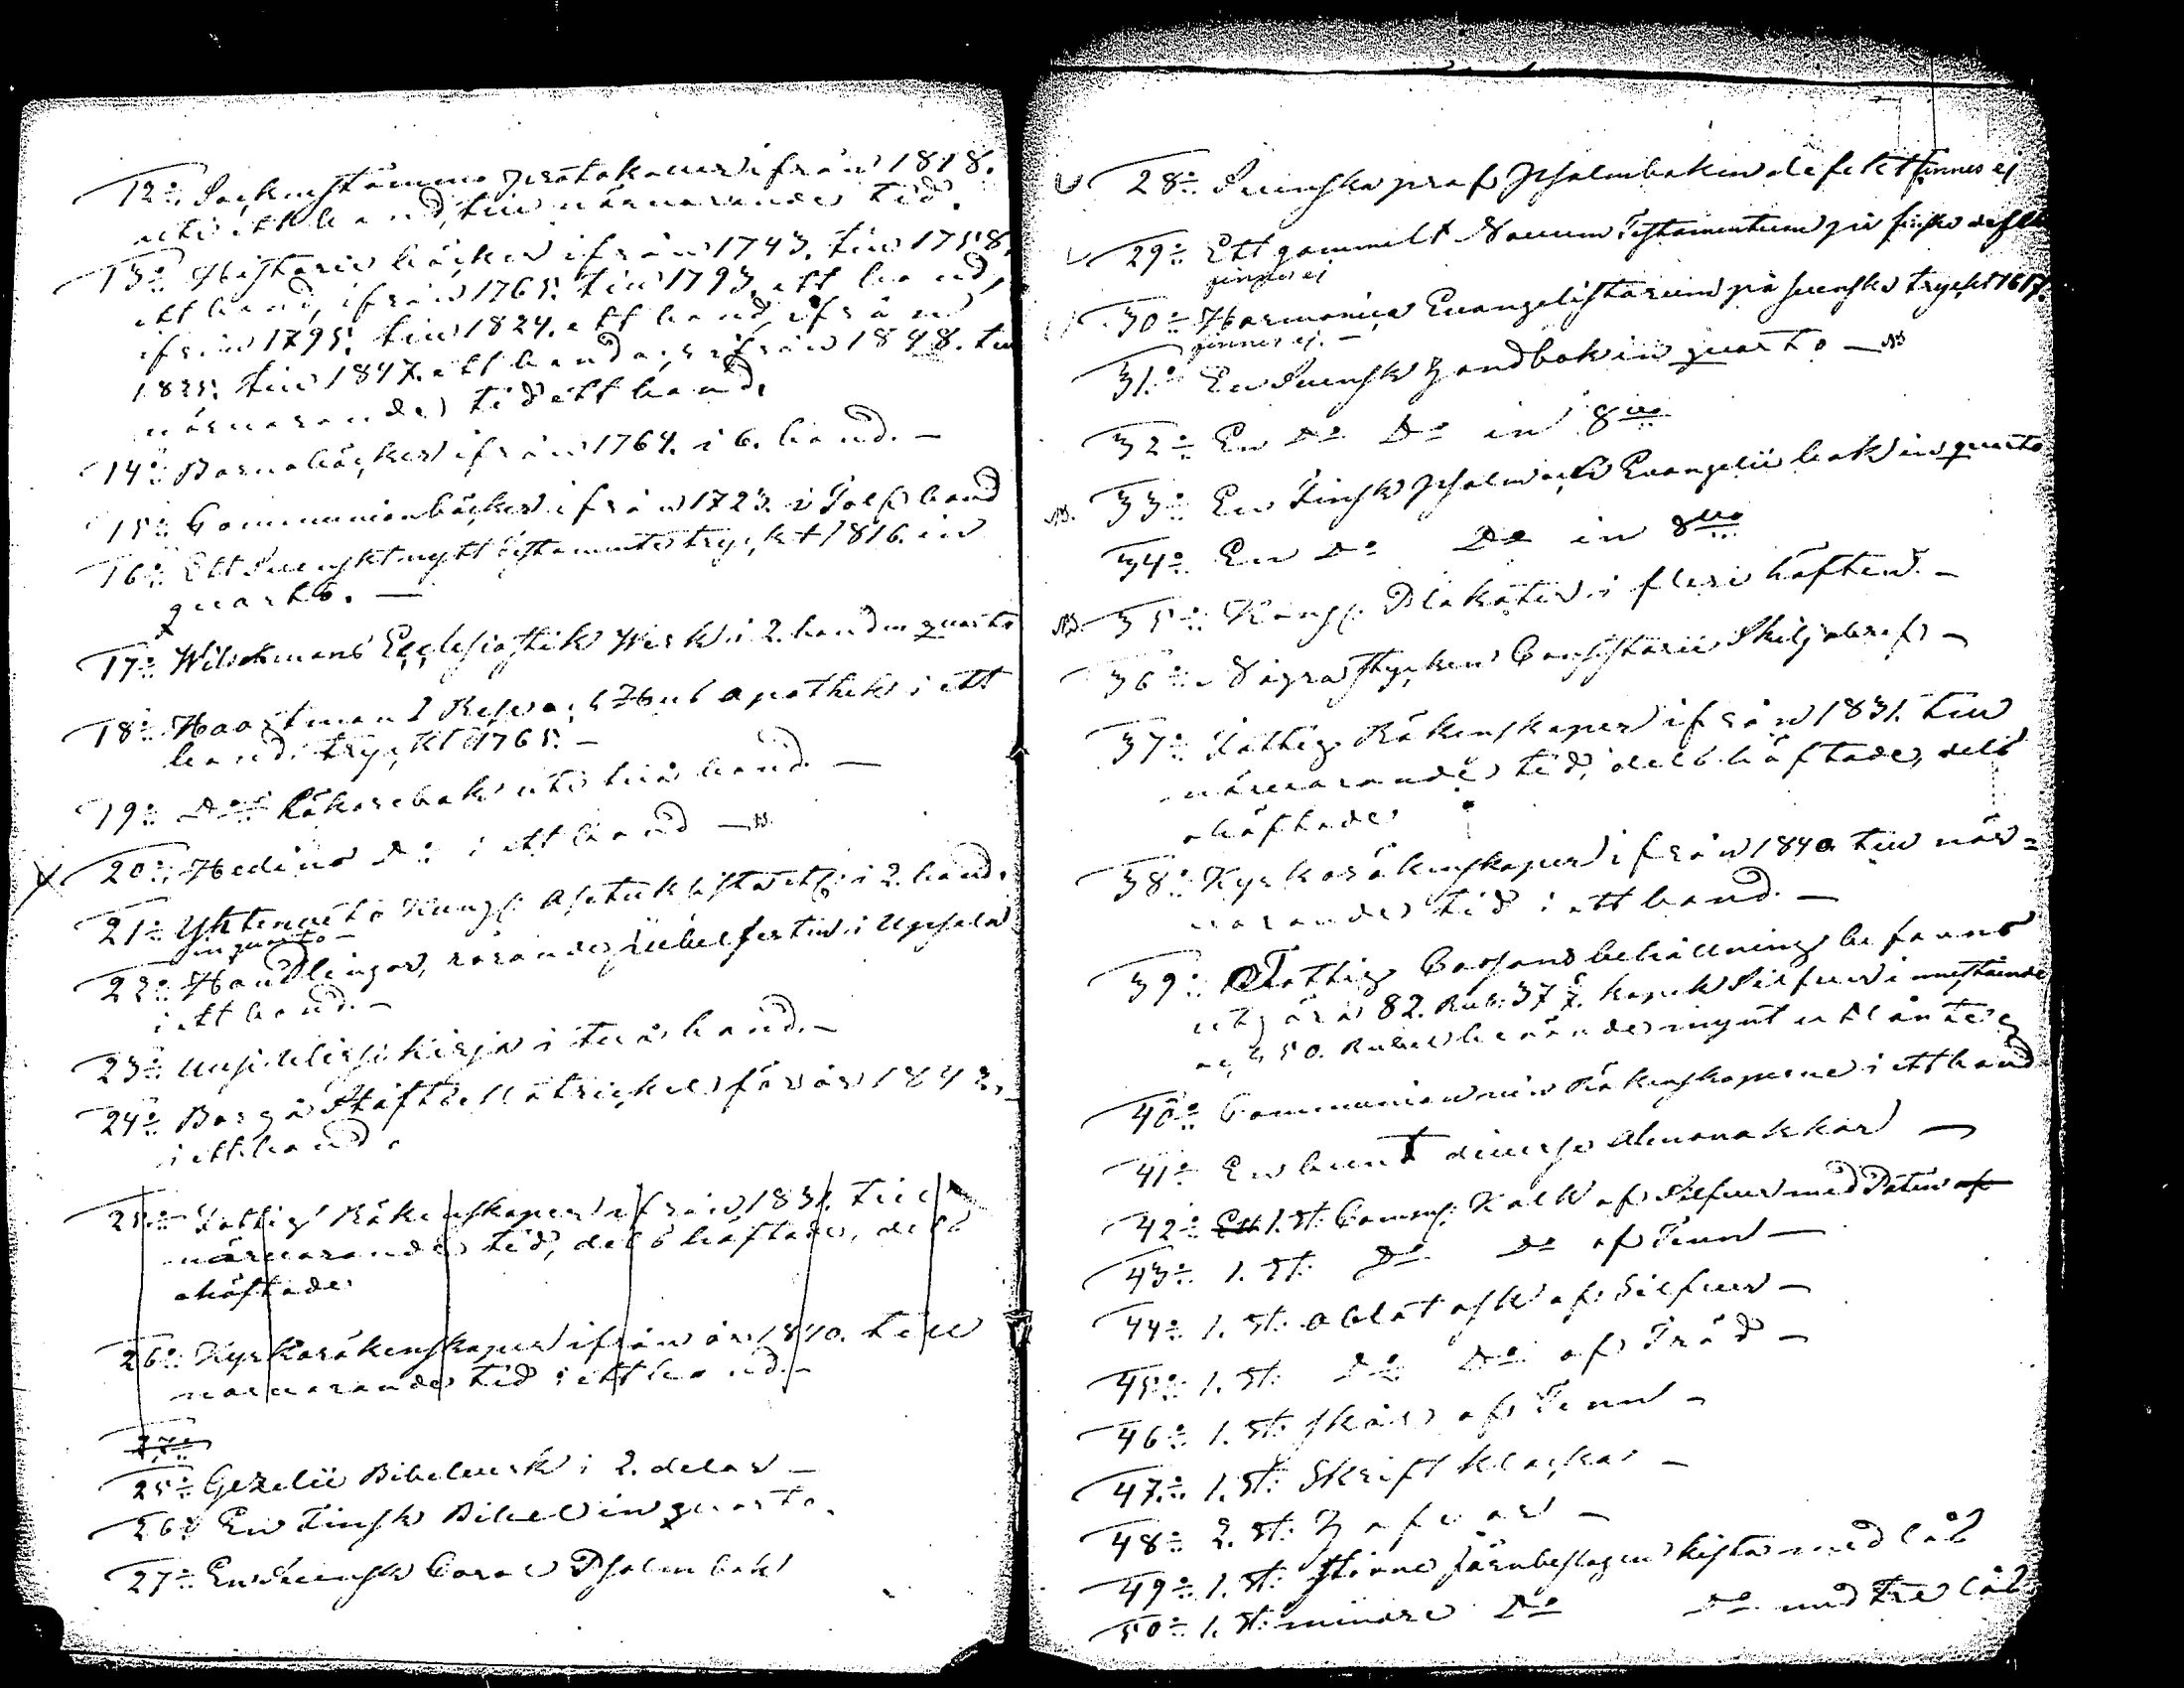 12:o Sockenstämmo protokoller ifrån 1818.
uti ett band, till närvarande tid.
13:o Historie böcker ifrån 1743. till 1758.
ett band, ifrån 1765. till 1793. ett band,
ifrån 1795. till 1824. ett band, ifrån
1825. till 1847. ett band och ifrån 1848. till
närvarande tid ett band.
14:o Barnaböcker ifrån 1764. i 6. band. —
15:o Communionböcker ifrån 1723. i Tolf band
16:o Ett Svenskt nytt testamente tryckt 1816. in
quarto. —
17:o Wilskmans Ecclesiastik Werk i 2. band in quarto
18:o Haartmans Resa och Hus apothek i ett
band. tryckt 1765. —
19:o D:o Läkarebok uti två band. —
20:o Hedins D:o i ett band — NB
21:o Yhteneretö Kungl: i 2. band.
in quarto —
22:o Handlingar, rörande Jubelfesten i Upsala
i ett band. —
23:o Uusi Uirsikirja i två band. —
24:o Borgå Stifts Matrickel för år 1842,
i ett band.
25:o Fattig Räkenskaper ifrån 1831. till
närvarande tid, dels häftade, dels
ohäftade
26:o Kyrkoräkenskaper ifrån år 1840. till
närvarande tid i ett band. —
27:o
25:o Gezelii Bibelverk i 2. delar —
26:o En Finsk Bibel in quarto.
27:o En Svensk Coral Psalmbok
28:o Svenska prof Psalmboken defekt finnes ej
29:o Ett gammalt Novum Testamentum på finska defekt
finnes ej
30:o Harmonica Evangelistarum på svenska tryckt 1617.
finnes ej. —
31:o En Svensk Handbok in quarto — NB
32:o En D:o D:o in 8:vo
NB. 33:o En Finsk Psalm och Evangelii bok in quarto
34:o En D:o D:o in 8:vo
NB. 35:o Kongl: Plakater i flere häften. —
36:o Några stycken Consistorii Skiljobref —
37:o Fattig Räkenskaper ifrån 1831. till
närvarande tid, dels häftade, dels
ohäftade
38:o Kyrkoräkenskaper ifrån 1840. till när=
varande tid i ett band. —
39:o Fattig Cassans behållning befanns
utgöra 82. Rub: 37 kopek Silfver i
och 50. Rubel mynt utlånte
40:o Communion vin Räkenskaperne i ett band
41:o En bunt diverse Almanakkor —
42:o Ett 1. St: Comm: Kalk af Silfver med Paten af
43:o 1. St: D:o D:o af Tenn —
44:o 1. St: Oblat ask af Silfver —
45:o 1. St: D:o D:o af Träd —
46:o 1. St: skål af Tenn —
47:o 1. St: Skrift klocka —
48:o 2. St: Håfvar —
49:o 1. St: större järnbeslagen kista med lås
50:o 1. St: mindre D:o D:o med tre lås